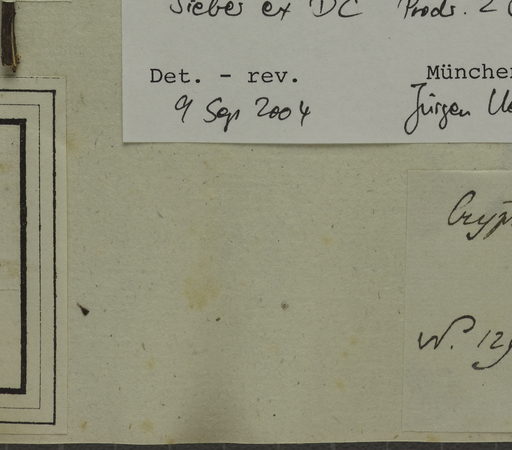 Sieber ex DC Prodr. 2
Det. - rev. München
9 Sep 2004 Jürgen
Cryp
N.° 129